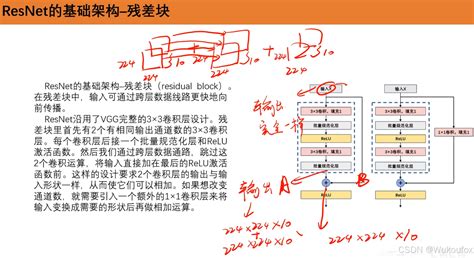 ResNet的基础架构–残差块
224 224 310 224 224 310 + 224 310
ResNet的基础架构–残差块（residual block）。
在残差块中，输入可通过跨层数据线路更快地向
前传播。
ResNet沿用了VGG完整的3×3卷积层设计。残差
块里首先有2个有相同输出通道数的3×3卷积
层。每个卷积层后接一个批量规范化层和ReLU
激活函数。然后我们通过跨层数据通路，跳过这
2个卷积运算，将输入直接加在最后的ReLU激活
函数前。这样的设计要求2个卷积层的输出与输
入形状一样，从而使它们可以相加。如果想改变
通道数，就需要引入一个额外的1×1卷积层来将
输入变换成需要的形状后再做相加运算。
输入X
3×3卷积，填充1
批量规范化层
ReLU
3×3卷积，填充1
批量规范化层
ReLU
输入X
3×3卷积，填充1
批量规范化层
ReLU
3×3卷积，填充1
批量规范化层
1×1卷积
ReLU
输出
完全一样
输出 A
B
224×224×10
+
224×224×10
224×224×10
CSDN @Wukoufox